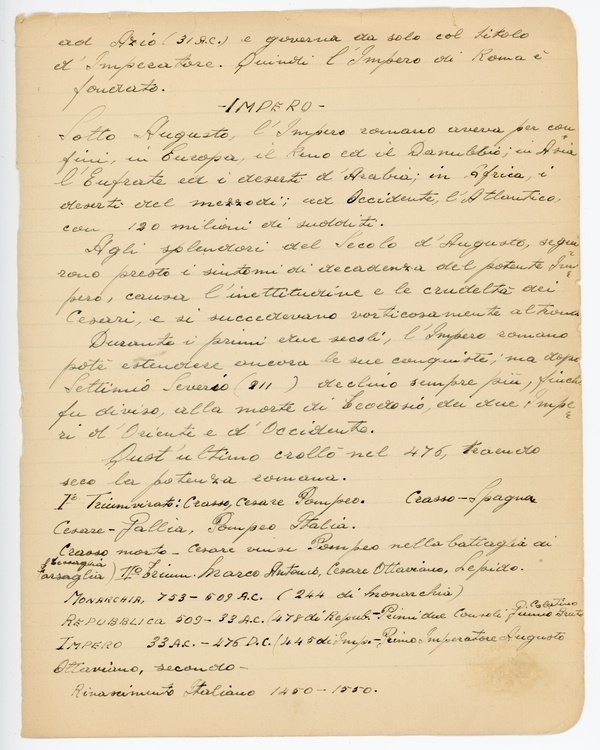 ad Azio (31 A.C.) e governa da solo col titolo
d'Imperatore. Quindi l'Impero di Roma è
fondato.
-IMPERO-
Sotto Augusto, l'Impero romano aveva per con
fini, in Europa, il Reno ed il Danubbio; in Asia
l'Eufrate ed i deserti d'Arabia; in Africa, i
deserti del mezzodi; ad Occidente, l'Atlantico,
con 120 milioni di sudditi.
Agli splendori del Secolo d'Augusto, segui
rono presto i sintomi di decadenza del potente Im=
pero, causa l'inettitudine e le crudeltà dei
Cesari, e si succedevano vorticosamente al trono
Durante i primi due secoli, l'Impero romano
potè estendere ancora le sue conquiste; ma dopo
Settimio Severo (211) declinò sempre più, finchè
fu diviso, alla morte di Teodosio, dei due Impe=
ri d'Oriente e d'Occidente.
Quest'ultimo crollò nel 476, traendo
seco la potenza romana.
I° Triumvirato: Crasso, Cesare Pompeo. Crasso-Spagna
Cesare-Gallia, Pompeo Italia.
Crasso morto - Cesare vinse Pompeo nella battaglia di
Farsaglia) II° Trium. Marco Antonio, Cesare Ottaviano, Lepido.
MONARCHIA, 753-509 A.C. (244 di monarchia)
REPUBBLICA 509-33 A.C. (478 di Repub.-Primi due Consoli G. Colatino Giunio Bruto
IMPERO 33 A.C.-476 D.C. (445 di Imp.-Primo Imperatore Augusto
Ottaviano, secondo-
Rinascimento Italiano 1450-1550.